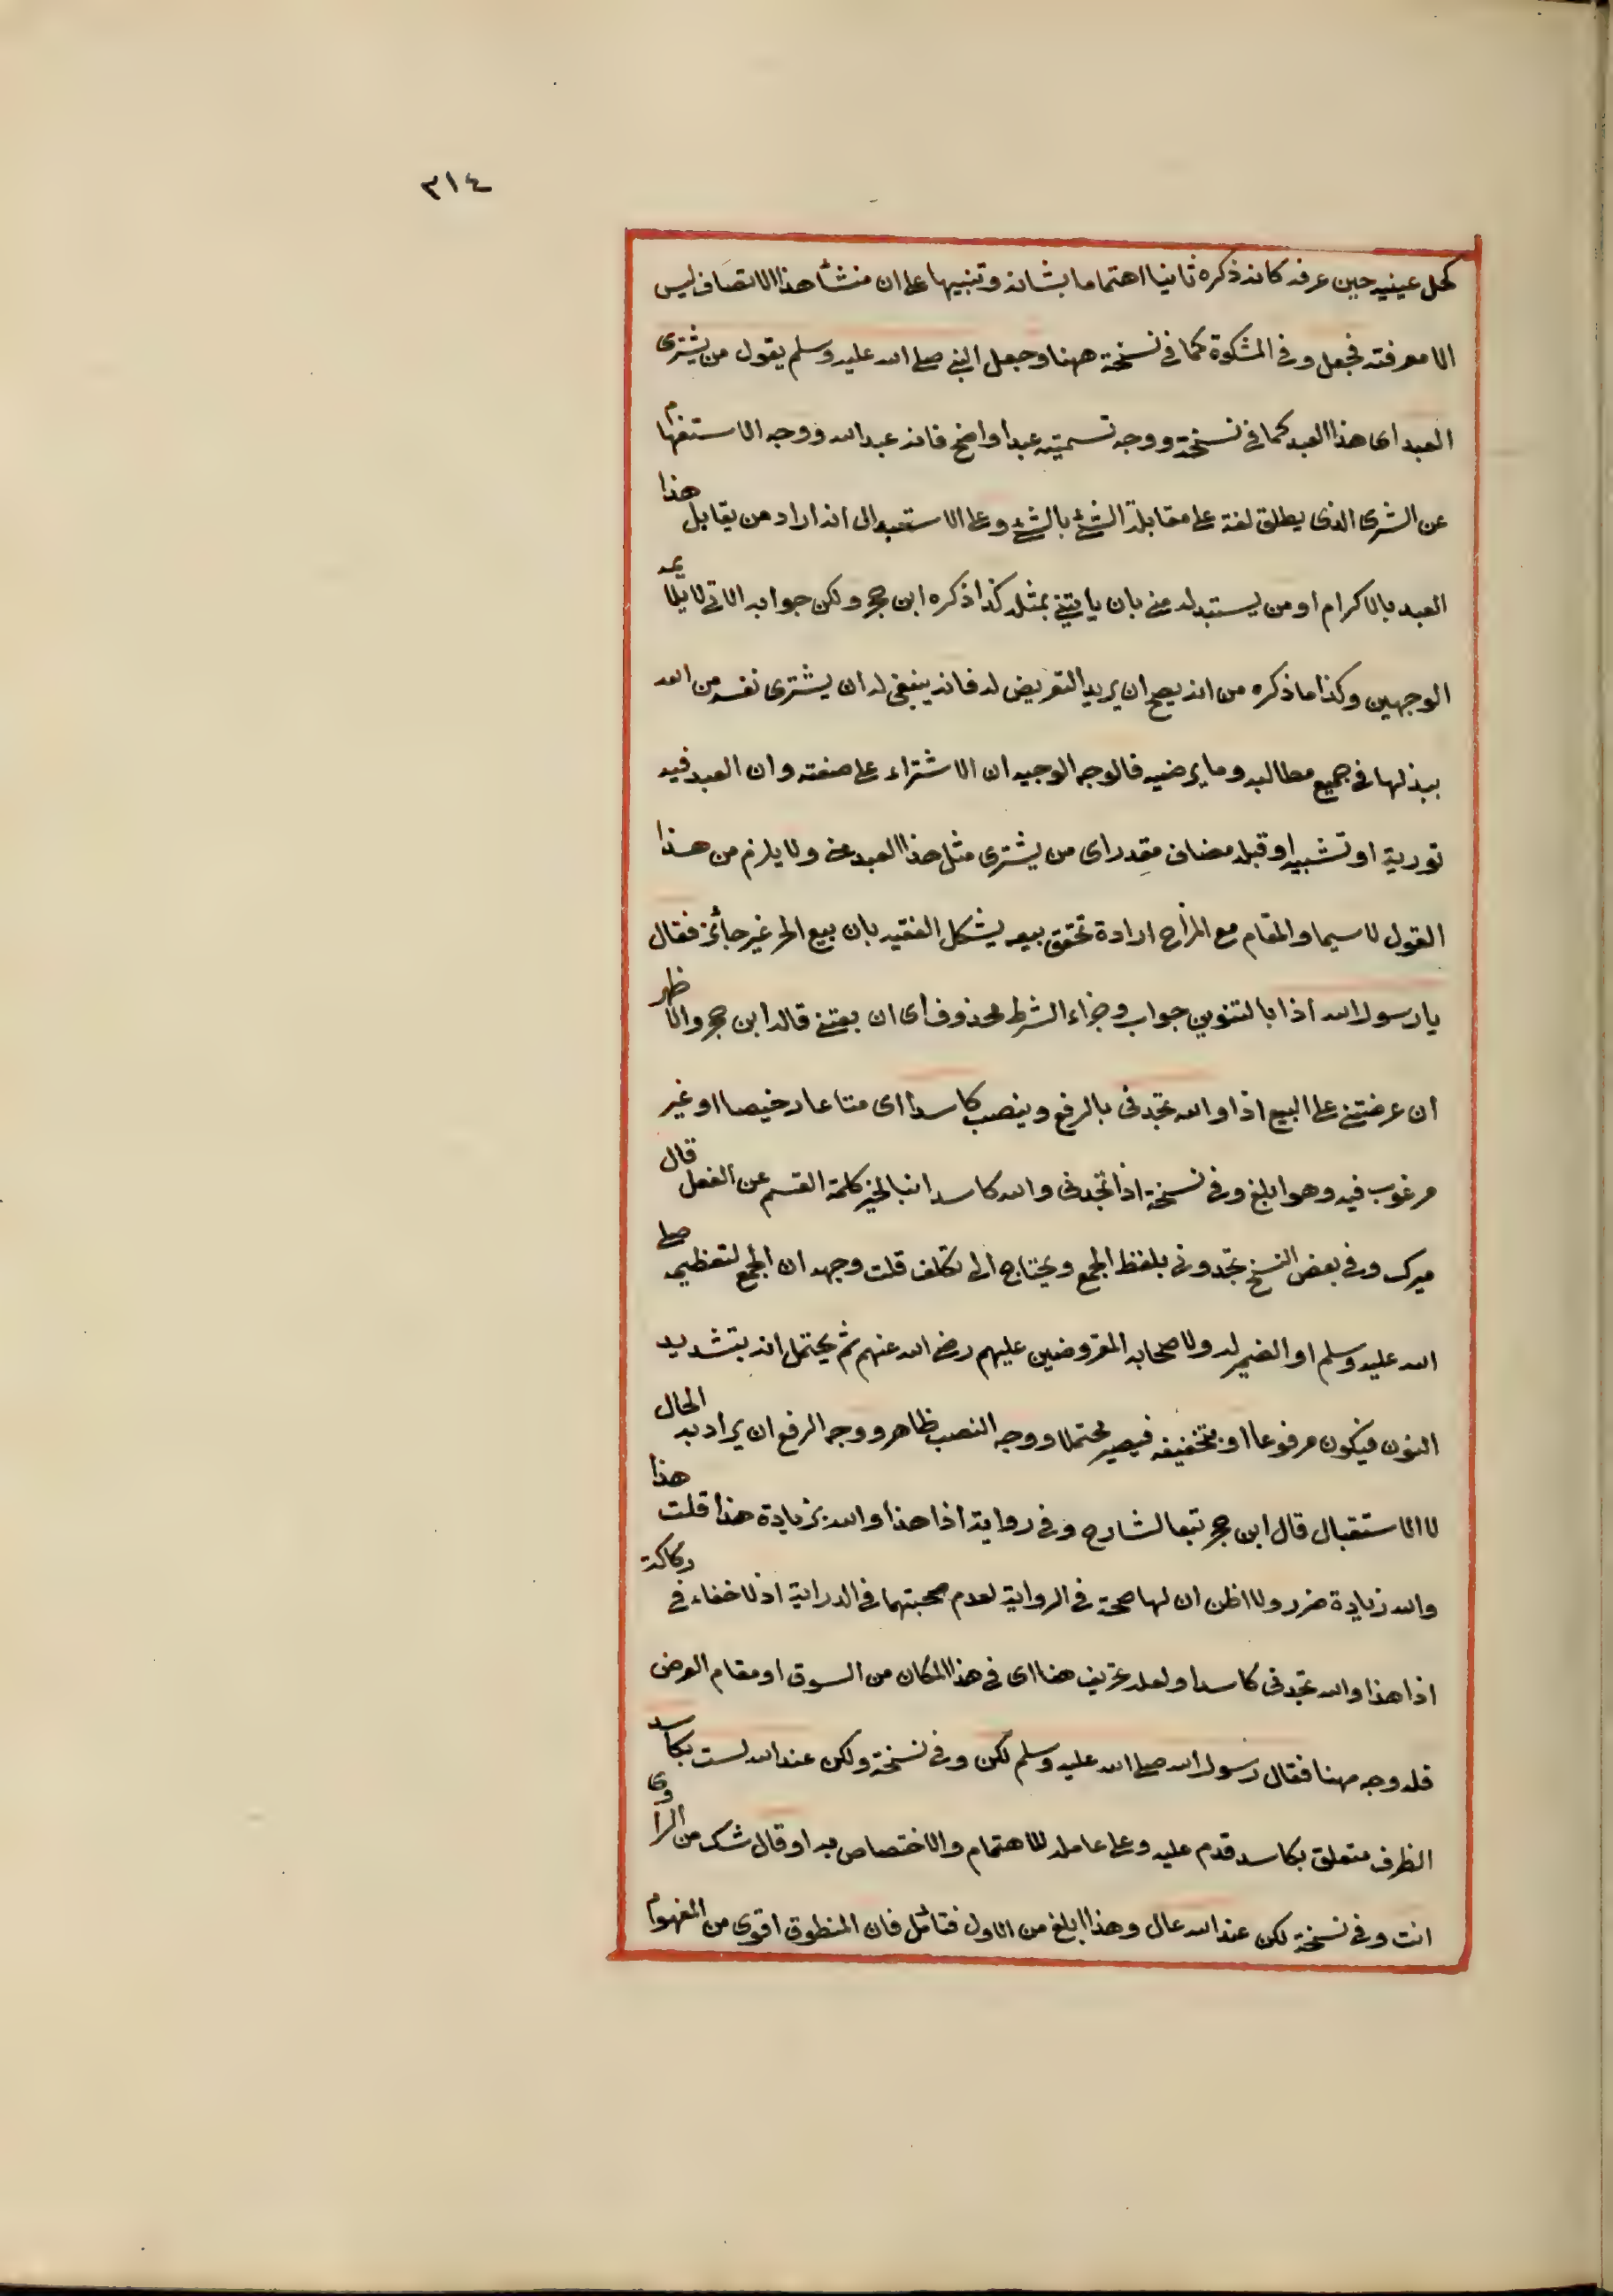 ٣١٤
كحل عينيه حين عرفه كانه ذكره ثانيا اهتماما بشانه وتنبيها على ان منشأ هذا الاتصاف ليس
الا معرفته فجعل وفى المشكوة كما فى نسخة ههنا وجعل النبى صلى الله عليه وسلم يقول من يشترى
العبد اى هذا العبد كما فى نسخة ووجه تسميته عبدا واضح فانه عبد الله ووجه الاستفهام
عن الشرى الذى يطلق لغة على مقابلة الشئ بالشئ وعلى الاستبدال انه اراد من يقابل هذا
العبد بالاكرام او من يستبدله منى بان ياتينى بمثله كذا ذكره ابن حجر ولكن جوابه الاتى لا يلايم
الوجهين وكذا ما ذكره من انه يصح ان يريد التعريض له فانه ينبغى له ان يشترى نفسه من الله
ببذلها فى جميع مطالبه وما يرضيه فالوجه الوجيه ان الاشتراء على صنعته وان العبد فيه
تورية او تشبيه او قبله مضاف مقدر اى من يشترى مثل هذا العبد منى ولا يلزم من هذا
القول لا سيما والمقام مع المزاح ارادة تحقق بيعه ليشكل الفقيه بان بيع الحر غير جائز فقال
يا رسول الله اذا بالتنوين جواب وجزاء الشرط محذوف اى ان بعتنى قاله ابن حجر والاظهر
ان عرضتنى على البيع اذا والله تجدنى بالرفع وينصب كاسدا اى متاعا رخيصا او غير
مرغوب فيه وهو ابلغ وفى نسخة اذا تجدنى والله كاسدا بتاخير كلمة القسم عن الفعل قال
ميرك وفى بعض النسخ تجدونى بلفظ الجمع ويحتاج الى تكلف قلت وجهه ان الجمع لتعظيمه صلى
الله عليه وسلم او الضمير له ولاصحابه المعروضين عليهم رضى الله عنهم ثم يحتمل انه بتشديد
النون فيكون مرفوعا او بتخفيفه فيصير محتملا ووجه النصب ظاهر ووجه الرفع ان يراد به الحال
لا الاستقبال قال ابن حجر تبعا لشارح وفى رواية اذا هذا والله بزيادة هذا قلت هذا
والله زيادة ضرر ولا اظن ان لها صحة فى الرواية لعدم صحتها فى الدراية اذ لا خفاء فى ركاكة
اذا هذا والله تجدنى كاسدا ولعله تحريف هنا اى فى هذا المكان من السوق او مقام العرض
فله وجه ههنا فقال رسول الله صلى الله عليه وسلم لكن وفى نسخة ولكن عند الله لست بكاسد
الظرف متعلق بكاسد قدم عليه وعلى عامله للاهتمام والاختصاص به او قال شك من الراوى
انت وفى نسخة لكن عند الله غال وهذا ابلغ من الاول فتأمل فان المنطوق اقوى من المفهوم